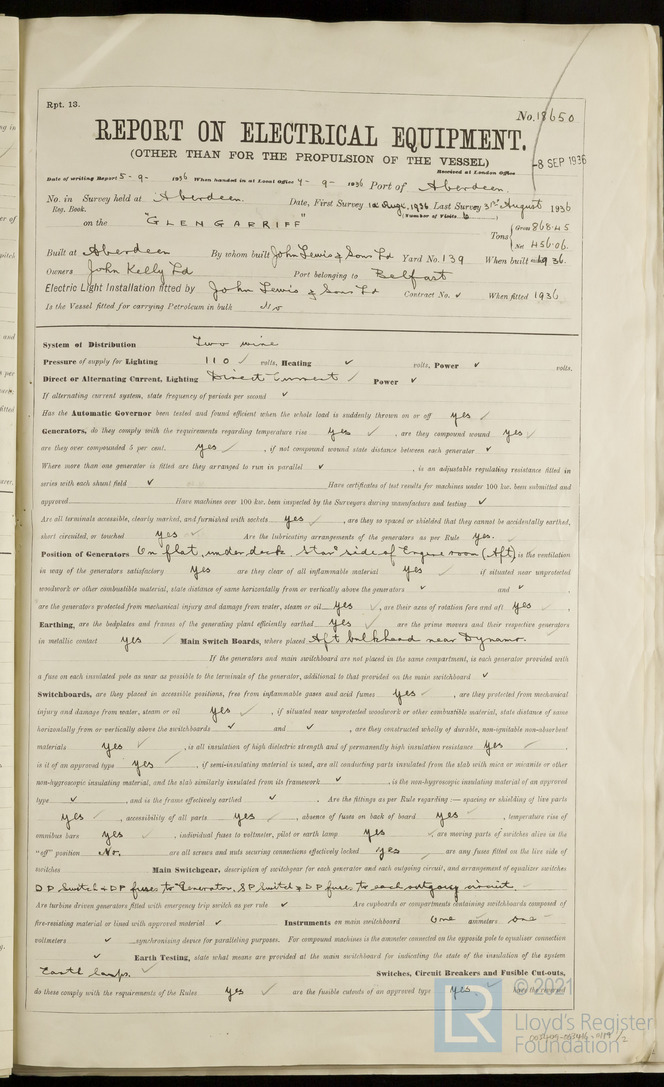 Rpt. 13.
No. 18650
REPORT ON ELECTRICAL EQUIPMENT.
(OTHER THAN FOR THE PROPULSION OF THE VESSEL)
-8 SEP 1936
Received at London Office
Date of writing Report 5 - 9 - 1936 When handed in at Local Office 7 - 9 - 1936 Port of Aberdeen.
No. in Survey held at Aberdeen. Date, First Survey Augt. 1936 Last Survey 31st August 1936
Reg. Book. Number of Visits 6
on the "GLENGARRIFF" Tons { Gross 868.45
Net 456.06.
Built at Aberdeen By whom built John Lewis & Sons Ld Yard No. 139 When built 1936.
Owners John Kelly Ld Port belonging to Belfast
Electric Light Installation fitted by John Lewis & Sons Ld Contract No. ✓ When fitted 1936
Is the Vessel fitted for carrying Petroleum in bulk No
System of Distribution Two wire
Pressure of supply for Lighting 110 ✓ volts, Heating ✓ volts, Power ✓ volts.
Direct or Alternating Current, Lighting Direct Current ✓ Power ✓
If alternating current system, state frequency of periods per second ✓
Has the Automatic Governor been tested and found efficient when the whole load is suddenly thrown on or off yes ✓
Generators, do they comply with the requirements regarding temperature rise yes ✓, are they compound wound yes ✓
are they over compounded 5 per cent. yes ✓, if not compound wound state distance between each generator ✓
Where more than one generator is fitted are they arranged to run in parallel ✓, is an adjustable regulating resistance fitted in
series with each shunt field ✓ Have certificates of test results for machines under 100 kw. been submitted and
approved Have machines over 100 kw. been inspected by the Surveyors during manufacture and testing ✓
Are all terminals accessible, clearly marked, and furnished with sockets yes ✓, are they so spaced or shielded that they cannot be accidentally earthed,
short circuited, or touched yes ✓ Are the lubricating arrangements of the generators as per Rule yes. ✓
Position of Generators On flat, under deck, Star side of Engine room (Aft) is the ventilation
in way of the generators satisfactory yes are they clear of all inflammable material yes ✓ if situated near unprotected
woodwork or other combustible material, state distance of same horizontally from or vertically above the generators ✓ and ✓,
are the generators protected from mechanical injury and damage from water, steam or oil yes ✓, are their axes of rotation fore and aft yes ✓
Earthing, are the bedplates and frames of the generating plant efficiently earthed yes ✓ are the prime movers and their respective generators
in metallic contact yes ✓ Main Switch Boards, where placed Aft bulkhead near Dynamo.
If the generators and main switchboard are not placed in the same compartment, is each generator provided with
a fuse on each insulated pole as near as possible to the terminals of the generator, additional to that provided on the main switchboard ✓
Switchboards, are they placed in accessible positions, free from inflammable gases and acid fumes yes ✓, are they protected from mechanical
injury and damage from water, steam or oil yes ✓, if situated near unprotected woodwork or other combustible material, state distance of same
horizontally from or vertically above the switchboards ✓ and ✓, are they constructed wholly of durable, non-ignitable non-absorbent
materials yes ✓, is all insulation of high dielectric strength and of permanently high insulation resistance yes ✓,
is it of an approved type yes ✓, if semi-insulating material is used, are all conducting parts insulated from the slab with mica or micanite or other
non-hygroscopic insulating material, and the slab similarly insulated from its framework ✓, is the non-hygroscopic insulating material of an approved
type ✓, and is the frame effectively earthed ✓. Are the fittings as per Rule regarding :— spacing or shielding of live parts
yes ✓, accessibility of all parts yes ✓, absence of fuses on back of board yes ✓, temperature rise of
omnibus bars yes ✓, individual fuses to voltmeter, pilot or earth lamp yes ✓, are moving parts of switches alive in the
"off" position No. are all screws and nuts securing connections effectively locked yes ✓ are any fuses fitted on the live side of
switches Main Switchgear, description of switchgear for each generator and each outgoing circuit, and arrangement of equalizer switches
D P Switch & D P fuses to Generator, S P Switch & D P fuses to each outgoing circuit.
Are turbine driven generators fitted with emergency trip switch as per rule ✓ Are cupboards or compartments containing switchboards composed of
fire-resisting material or lined with approved material ✓ Instruments on main switchboard One ammeters one
voltmeters ✓ synchronising device for paralleling purposes. For compound machines is the ammeter connected on the opposite pole to equaliser connection
✓ Earth Testing, state what means are provided at the main switchboard for indicating the state of the insulation of the system
Earth lamps ✓ Switches, Circuit Breakers and Fusible Cut-outs,
do these comply with the requirements of the Rules yes ✓ are the fusible cutouts of an approved type yes ✓
© 2021
LR
Lloyd's Register
Foundation